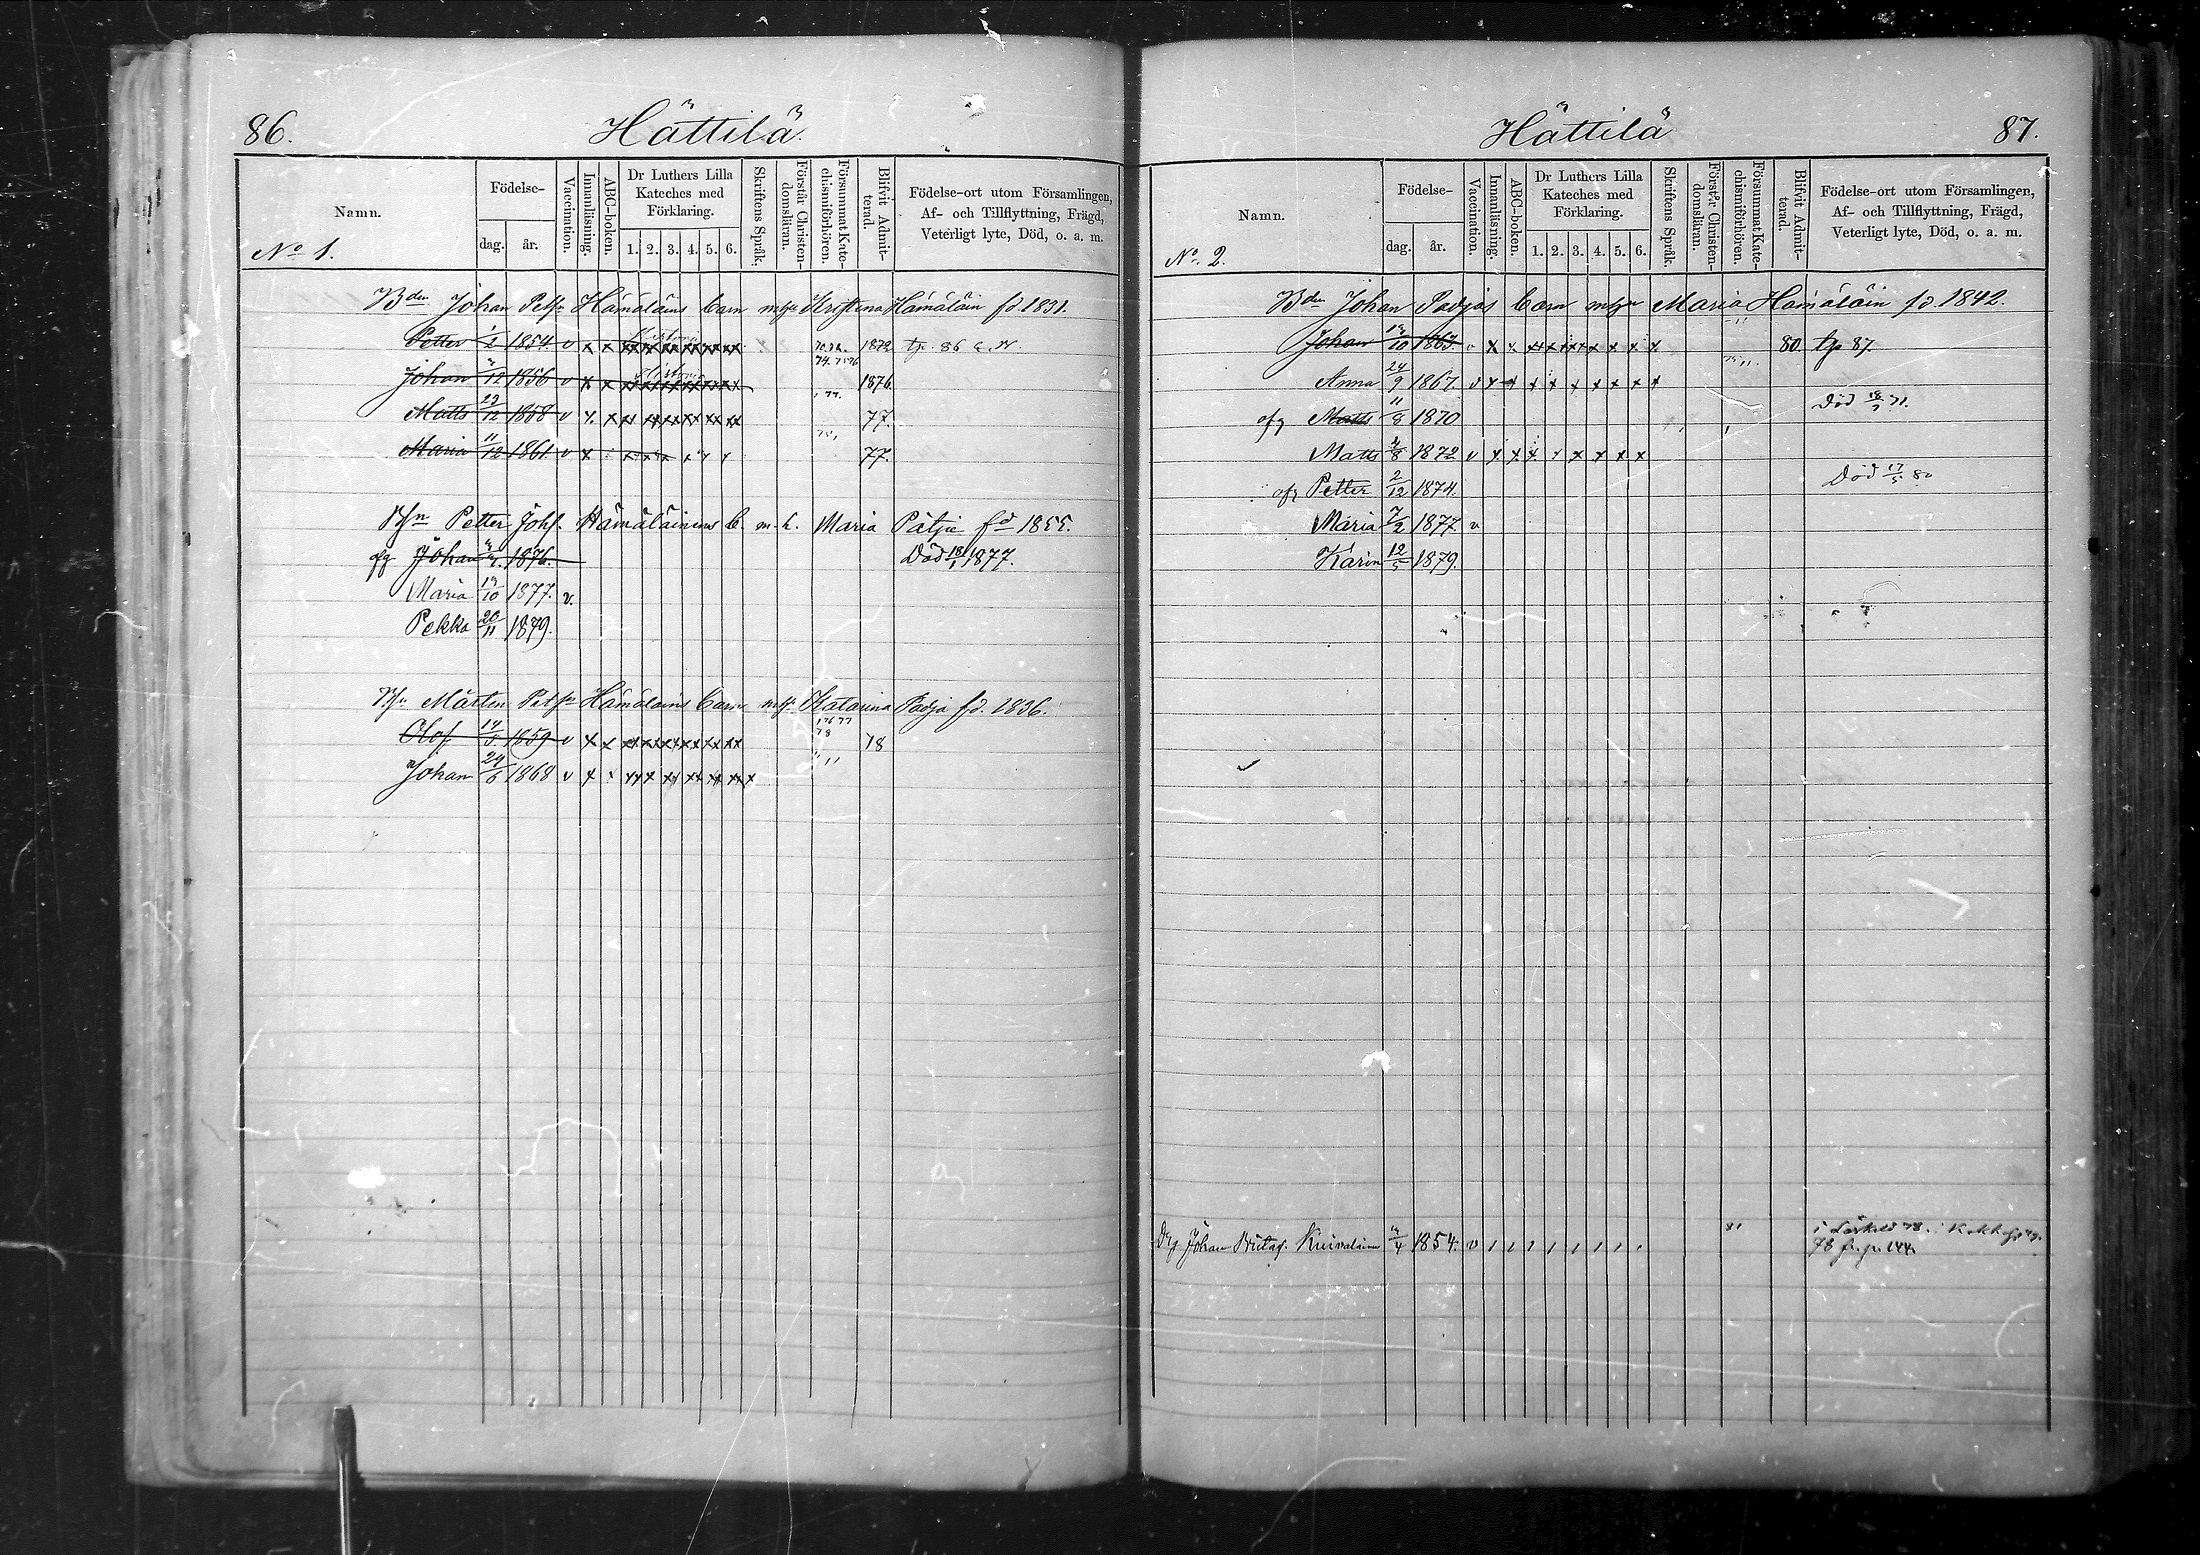 86. Hättilä
Namn.
No 1.
Födelse-
dag. år.
Vaccination.
Innanläsning.
ABC-boken.
Dr Luthers Lilla
Kateches med
Förklaring.
1. 2. 3. 4. 5. 6.
Skriftens Språk.
Förstår Christen-
domsläran.
Försummat Kate-
chismiförhören.
Blifvit Admit-
terad.
Födelse-ort utom Församlingen,
Af- och Tillflyttning, Frägd,
Veterligt lyte, Död, o. a. m.
Bdn Johan Petsn Hämäläins barn m hu Kristina Hämäläin fd. 1831.
Petter 1/2 1854. v x x 1872 tp. 86
Johan 12 1856 v x x 1876.
Matts 23/12 1858 v x x 77.
Maria 11/12 1861. v x 77.
Petter Johs. Hämäläinens b. m. h. Maria Pätjä fd 1855.
Johan 1876. Död 18/1 1877.
Maria 13/10 1877. v.
Pekka 20/11 1879.
Mårten Petsn Hämäläins barn m h. Katarina Padja fd. 1836.
Olof 14/5 1859 v x x 78
Johan 24/6 1868 v x
Hättilä 87.
Namn.
No. 2.
Födelse-
dag. år.
Vaccination.
Innanläsning.
ABC-boken.
Dr Luthers Lilla
Kateches med
Förklaring.
1. 2. 3. 4. 5. 6.
Skriftens Språk.
Förstår Christen-
domsläran.
Försummat Kate-
chismiförhören.
Blifvit Admit-
terad.
Födelse-ort utom Församlingen,
Af- och Tillflyttning, Frägd,
Veterligt lyte, Död, o. a. m.
Bdn Johan Padjas barn m hu Maria Hämäläin fd. 1842.
Johan 13/10 1863. v x x 80. tp 87.
Anna 24/9 1867. v x x x x x x x x x
Matts 11/8 1870 Död 18/7 71.
Matts 4/8 1872 v x x x x x x x x
Petter 2/12 1874. Död 17/5 80
Maria 7/2 1877. v
Karin 12/5 1879.
Drg Johan Kuivalain 1854. v
78 fr. p. 144.